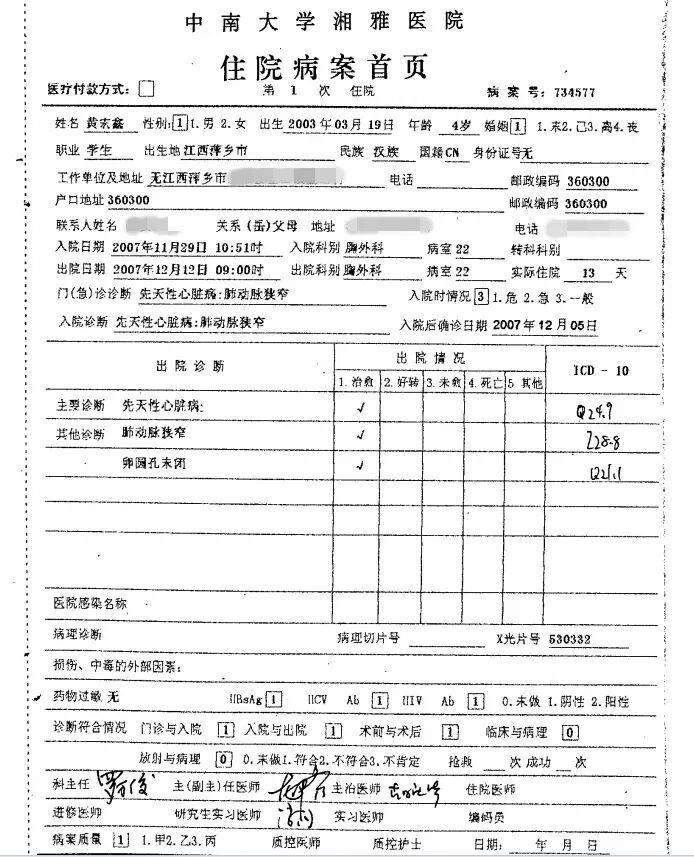 中南大学湘雅医院
住院病案首页
医疗付款方式: 第 1 次 住院 病案号: 734577
姓名 黄宏鑫 性别: 1 1. 男 2. 女 出生 2003 年 03 月 19日 年龄 4岁 婚姻 1 1. 未 2. 已 3. 离 4. 丧
职业 学生 出生地 江西萍乡市 民族 汉族 国籍 CN 身份证号 无
工作单位及地址 无江西萍乡市 电话 邮政编码 360300
户口地址 360300 邮政编码 360300
联系人姓名 关系 (岳) 父母 地址 电话
入院日期 2007年11月29日 10:51时 入院科别 胸外科 病室 22 转科科别
出院日期 2007年12月12日 09:00时 出院科别 胸外科 病室 22 实际住院 13 天
门(急)诊诊断 先天性心脏病:肺动脉狭窄 入院时情况 3 1. 危 2. 急 3. 一般
入院诊断 先天性心脏病:肺动脉狭窄 入院后确诊日期 2007年12月05日
出院诊断 出院情况 ICD - 10
1. 治愈 2. 好转 3. 未愈 4. 死亡 5. 其他
主要诊断 先天性心脏病: ✓ Q24.9
其他诊断 肺动脉狭窄 ✓ I28.8
卵圆孔未闭 ✓ Q21.1
医院感染名称
病理诊断 病理切片号 X光片号 530332
损伤、中毒的外部因素:
药物过敏 无 HBsAg 1 HCV Ab 1 HIV Ab 1 0. 未做 1. 阴性 2. 阳性
诊断符合情况 门诊与入院 1 入院与出院 1 术前与术后 1 临床与病理 0
放射与病理 0 0. 未做 1. 符合 2. 不符合 3. 不肯定 抢救 次 成功 次
科主任 罗万俊 主(副主)任医师 主治医师 住院医师
进修医师 研究生实习医师 实习医师 编码员
病案质量 1 1. 甲 2. 乙 3. 丙 质控医师 质控护士 日期: 年 月 日